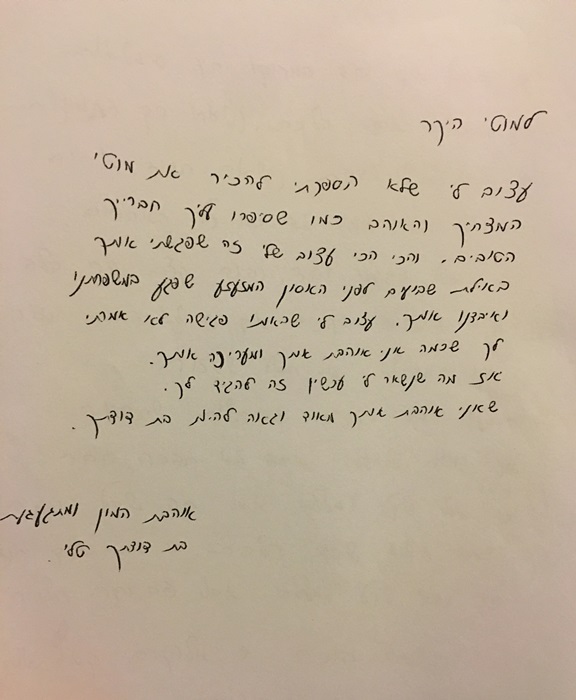 למוטי היקר
עצוב לי שלא הספקתי להכיר את מוטי
המצחיק והאוהב כמו שסיפרו עליך חברייך
הטובים. והכי הכי עצוב שלי זה שפגשתי אותך
באילת שבועיים לפני האסון המזעזע שפגע במשפחתנו
ואיבדנו אותך. עצוב לי שבאותו פגישה לא אמרתי
לך שכמה אני אוהבת אותך ומעריכה אותך.
אז מה שנשאר לי עכשיו זה להגיד לך.
שאני אוהבת אותך מאוד וגאה להיות בת דודתך.
אוהבת המון ומתגעגעת
בת דודתך טלי